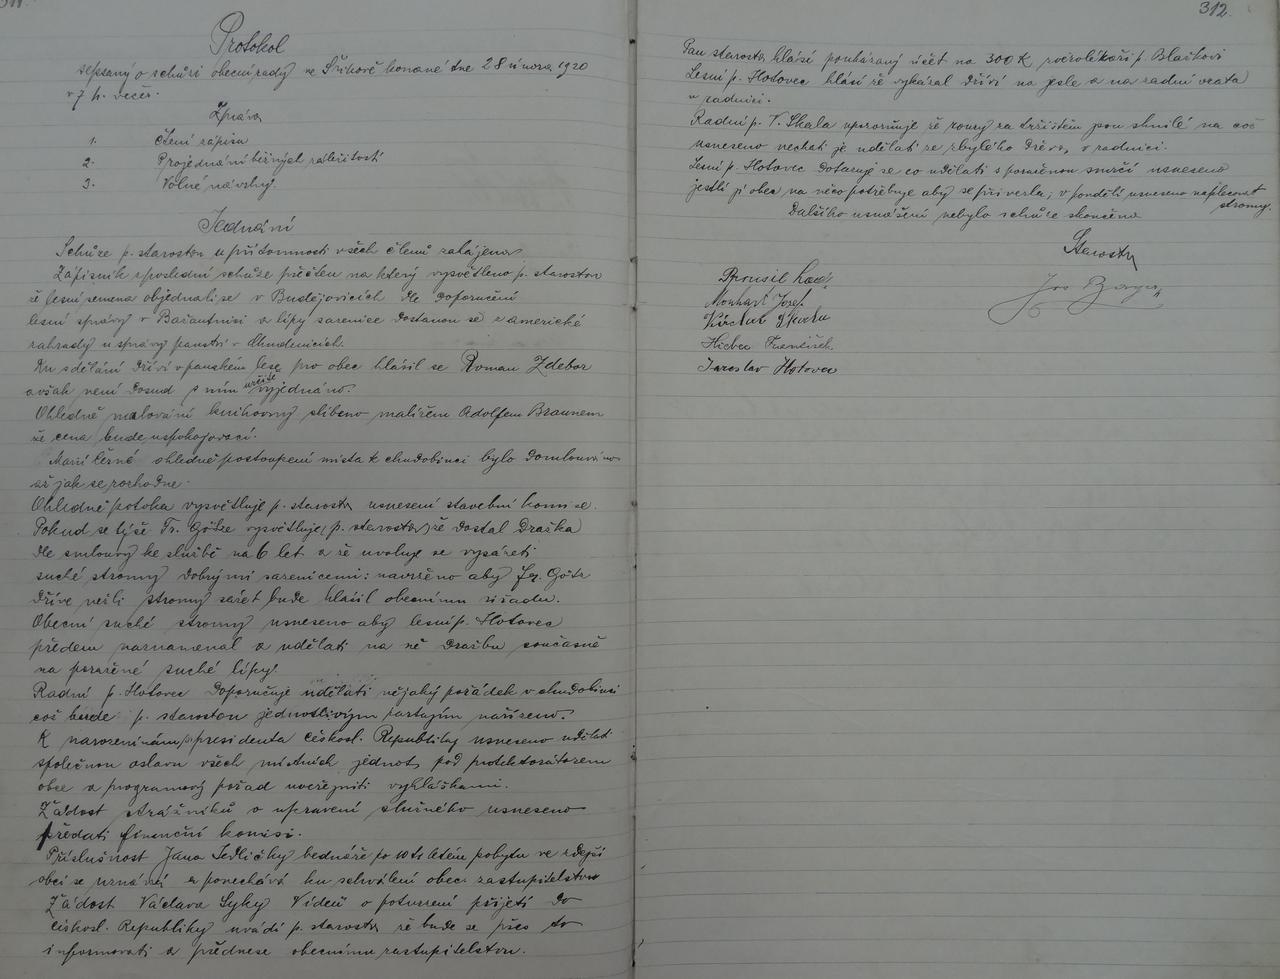 311.
Protokol
sepsaný o schůzi obecní rady ve Švihově konané dne 28 února 1920
v 7 h. večer.
Zpráva
1. Čtení zápisu
2. Projednání běžných záležitostí
3. Volné návrhy.
Jednání
Schůze p. starostou u přítomnosti všech členů zahájena
Zápisník z poslední schůze přečten na který vysvětleno p. starostou
že lesní semena objednali se v Budějovicích dle doporučení
lesní správy v Bažantnici a lípy sazenice dostanou se z americké
zahrady u správy panství v Chudenicích.
Ku sdělání dříví v panském lese pro obec hlásil se Roman Zdebor
avšak není dosud s ním určitě vyjednáno.
Ohledně malování knihovny slíbeno malířem Adolfem Braunem
že cena bude uspokojovací.
Marií Černé ohledně postoupení místa k chudobinci bylo domlouváno
až jak se rozhodne.
Ohledně potoka vysvětluje p. starosta usnesení stavební komise.
Pokud se týče Fr. Götze vysvětluje p. starosta, že dostal Draška
dle smlouvy ke službě na 6 let a že uvoluje se vysázeti
suché stromy dobrými sazenicemi: navrženo aby Götz
dříve nežli stromy sázet bude hlásil obecnímu úřadu.
Obecní suché stromy usneseno aby lesní p. Hotovec
předem zaznamenal a udělati na ně dražbu současně
na poražené suché lípy.
Radní p. Hotovec doporučuje udělati nějaký pořádek v chudobinci
což bude p. starostou jednotlivým partajím nařízeno.
K narozeninám presidenta českosl. Republiky usneseno udělati
společnou oslavu všech místních jednot, pod protektorátorem
obce a programový pořad uveřejniti vyhláškami.
Žádost strážníků o upravení služného usneseno
předati finanční komisi.
Příslušnost Jana Sedličky bednáře po 10ti letém pobytu ve zdejší
obci se uznává a ponechává ku schválení obec. zastupitelstvu
Žádost Václava Syky Vídeň o potvrzení přijetí do
českosl. Republiky uvádí p. starosta, že bude se přes to
informovati a přednese obecnímu zastupitelstvu.
312.
Pan starosta hlásí poukázaný účet na 300 K zvěrolékaři p. Blažkovi
Lesní p. Hotovec hlásí že vykázal dříví na pole a na zadní vrata
u radnici.
Radní p. V. Skala upozorňuje že roury za tržištěm jsou shnilé na což
usneseno nechati je udělati ze zbylého dřeva v radnici.
Lesní p. Hotovec dotazuje se co udělati s poraženou smrčí usneseno
jestli ji obec na něco potřebuje aby se přivezla; v pondělí usneseno
stromy.
Dalšího usnášení nebylo schůze skončena
Starosta
Prousil
Monhart Josef.
Václav Skala
František.
Jaroslav Hotovec
Jos